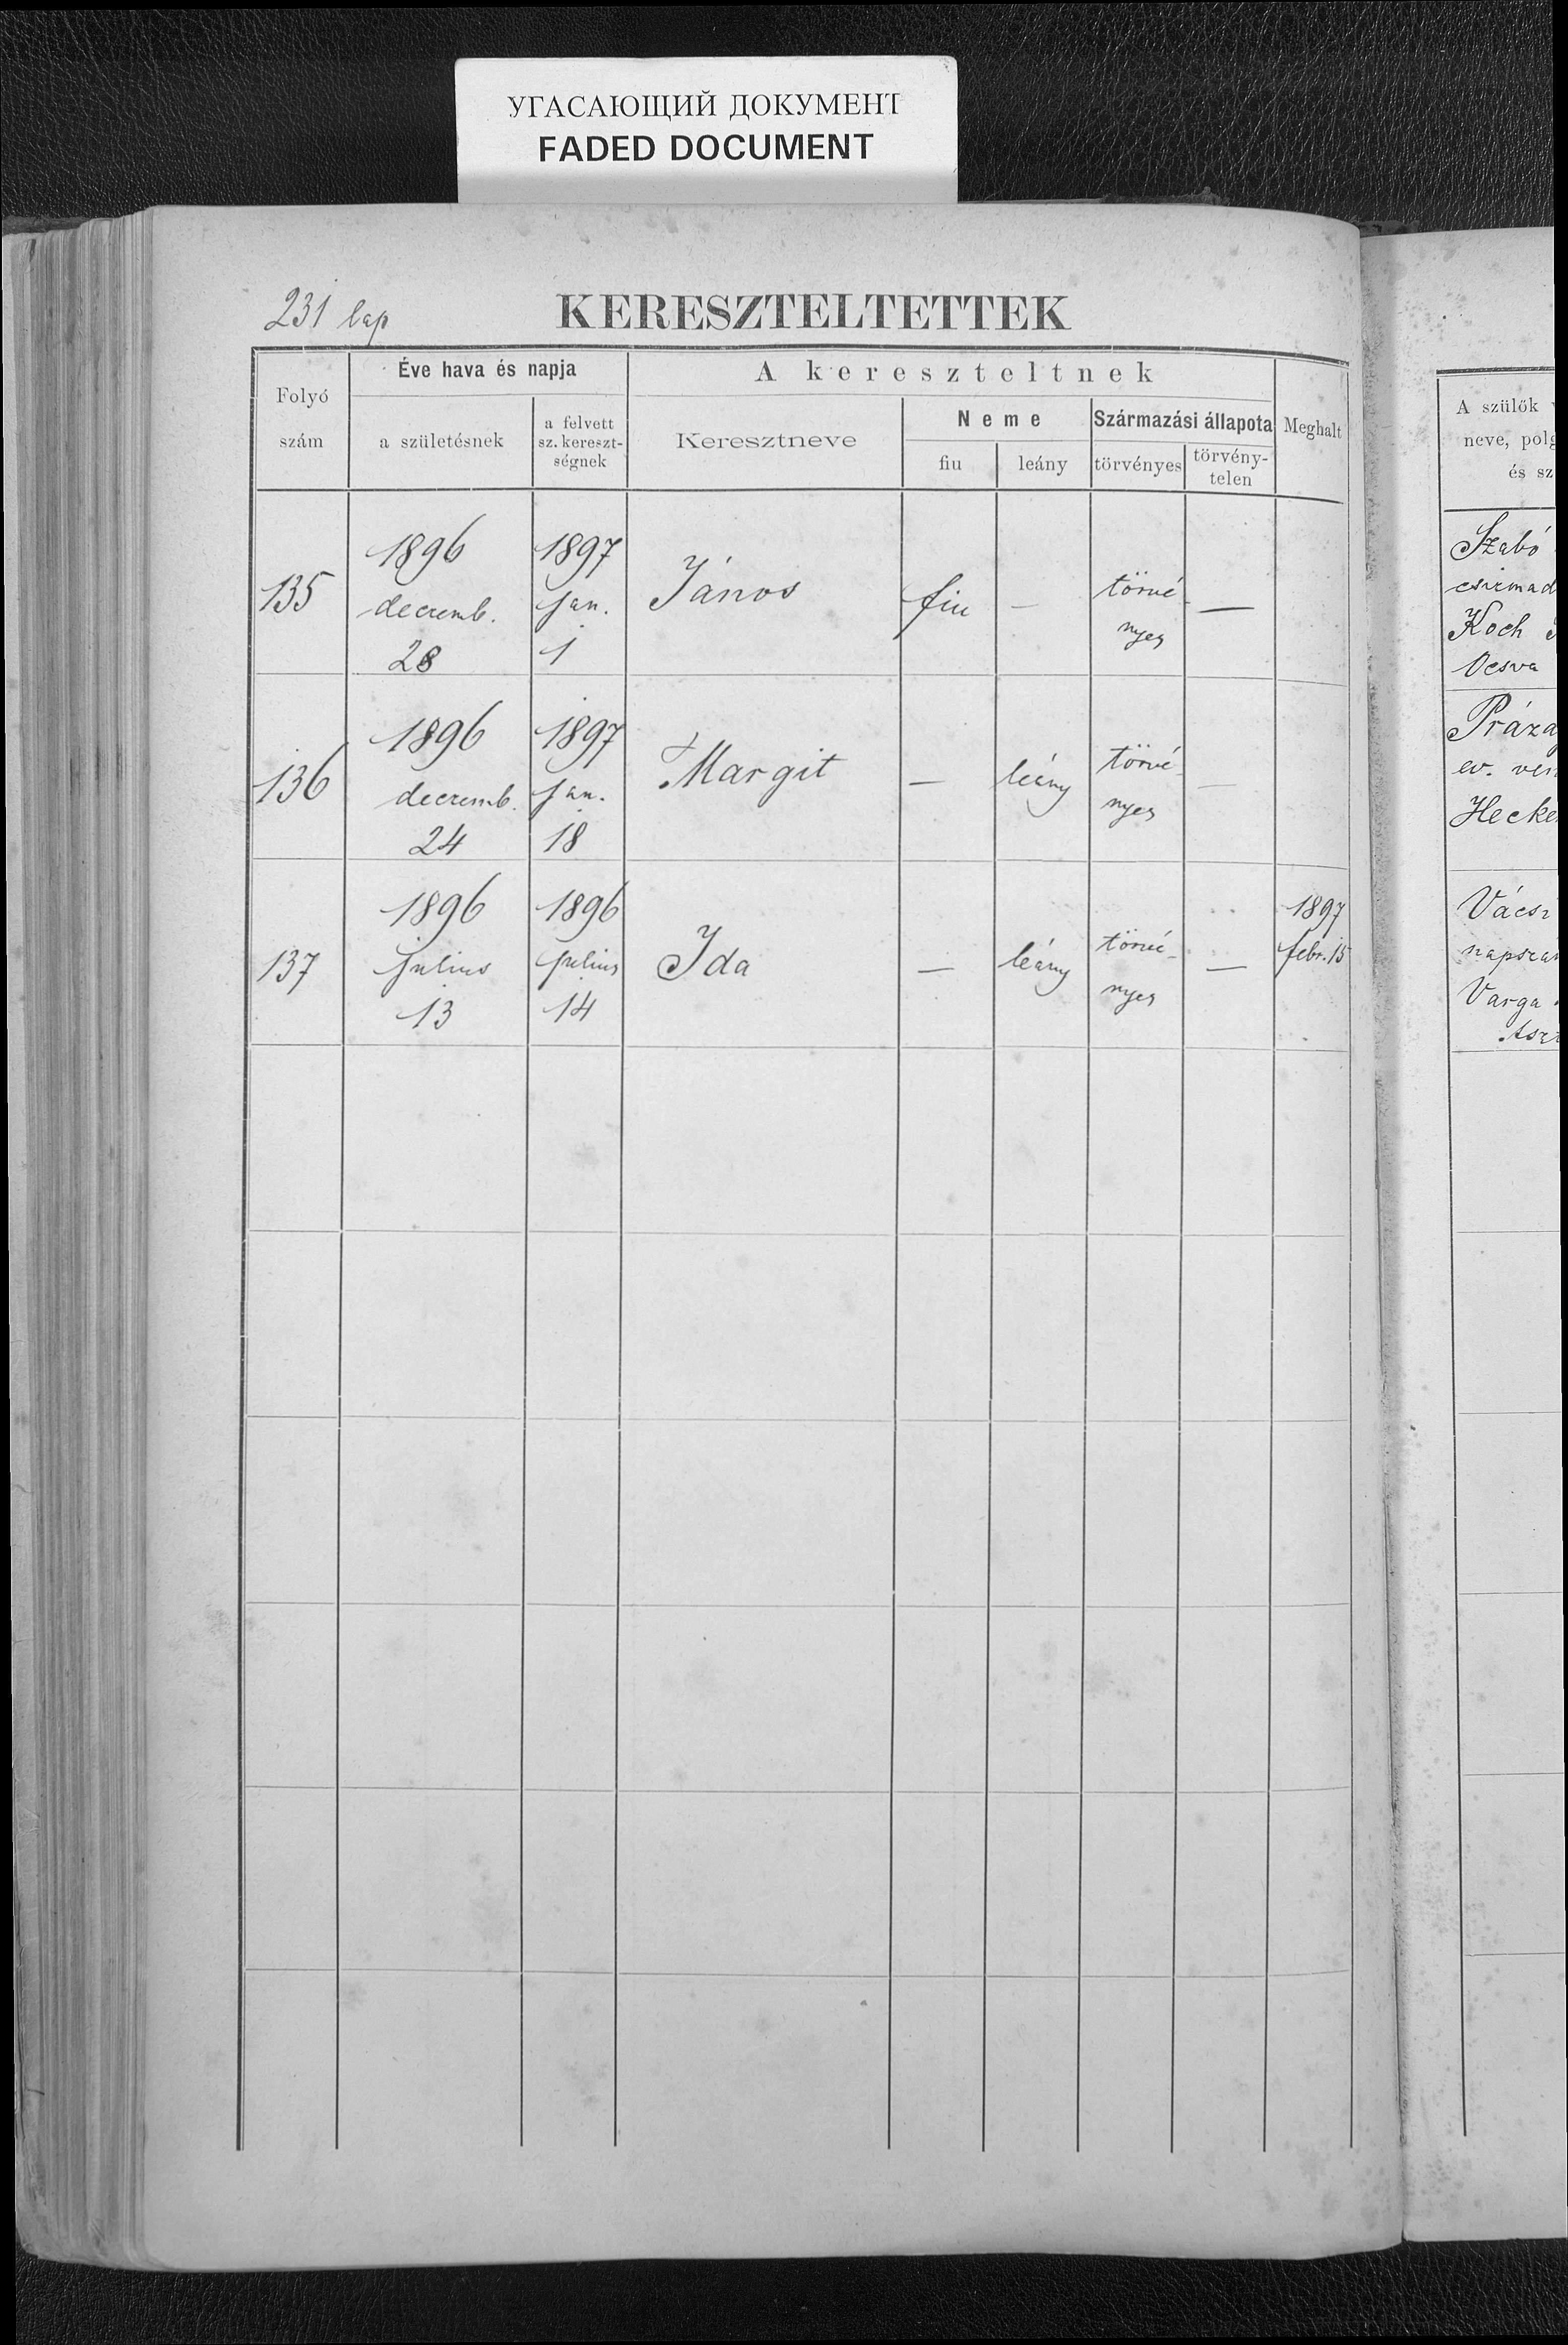 УГАСАЮЩИЙ ДОКУМЕНТ
FADED DOCUMENT
231 lap
KERESZTELTETTEK
Folyó szám
Éve hava és napja
a születésnek
a felvett sz. kereszt-ségnek
A kereszteltnek
Keresztneve
Neme
fiu
leány
Származási állapota
törvényes
törvény-telen
Meghalt
135
1896
decemb.
28
1897
jan.
1
János
fiu
—
törvé-
nyes
—
136
1896
decemb.
24
1897
jan.
18
Margit
—
leány
törvé-
nyes
—
137
1896
julius
13
1896
julius
14
Ida
—
leány
törvé-
nyes
—
1897
febr. 15
A szülők
neve, polg
és sz
Szabó
csizmad
Koch
Ocsva
Práza
ev.
Hecke
Vácsi
napszá
Varga